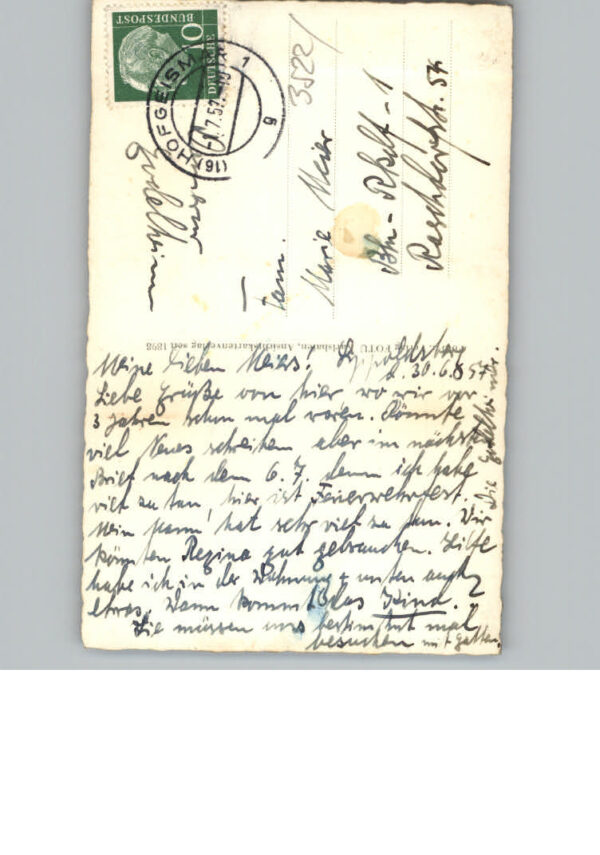 DEUTSCHE
BUNDESPOST
10
(16) HOFGEISM
-1.7.57.
3522/
Godelheim
Fam.
Marie Meier
Bln-Rkdf-1
Raschdorffstr. 54
Ansichtskartenverlag seit 1898
Meine Lieben Meiers! Lippoldsberg
d. 30.6.57
Liebe Grüße von hier wo wir vor
3 Jahren schon mal waren. Könnte
viel Neues schreiben aber im nächsten
Brief nach dem 6.7. denn ich habe
viel zu tun, hier ist Feuerwehrfest.
Mein Mann hat sehr viel zu tun. Wir
könnten Regina gut gebrauchen. Hilfe
habe ich in der Wohnung + unten auch
etwas. Wann kommt das Kind?
Sie müssen uns bestimmt mal
besuchen mit Gatten.
Die